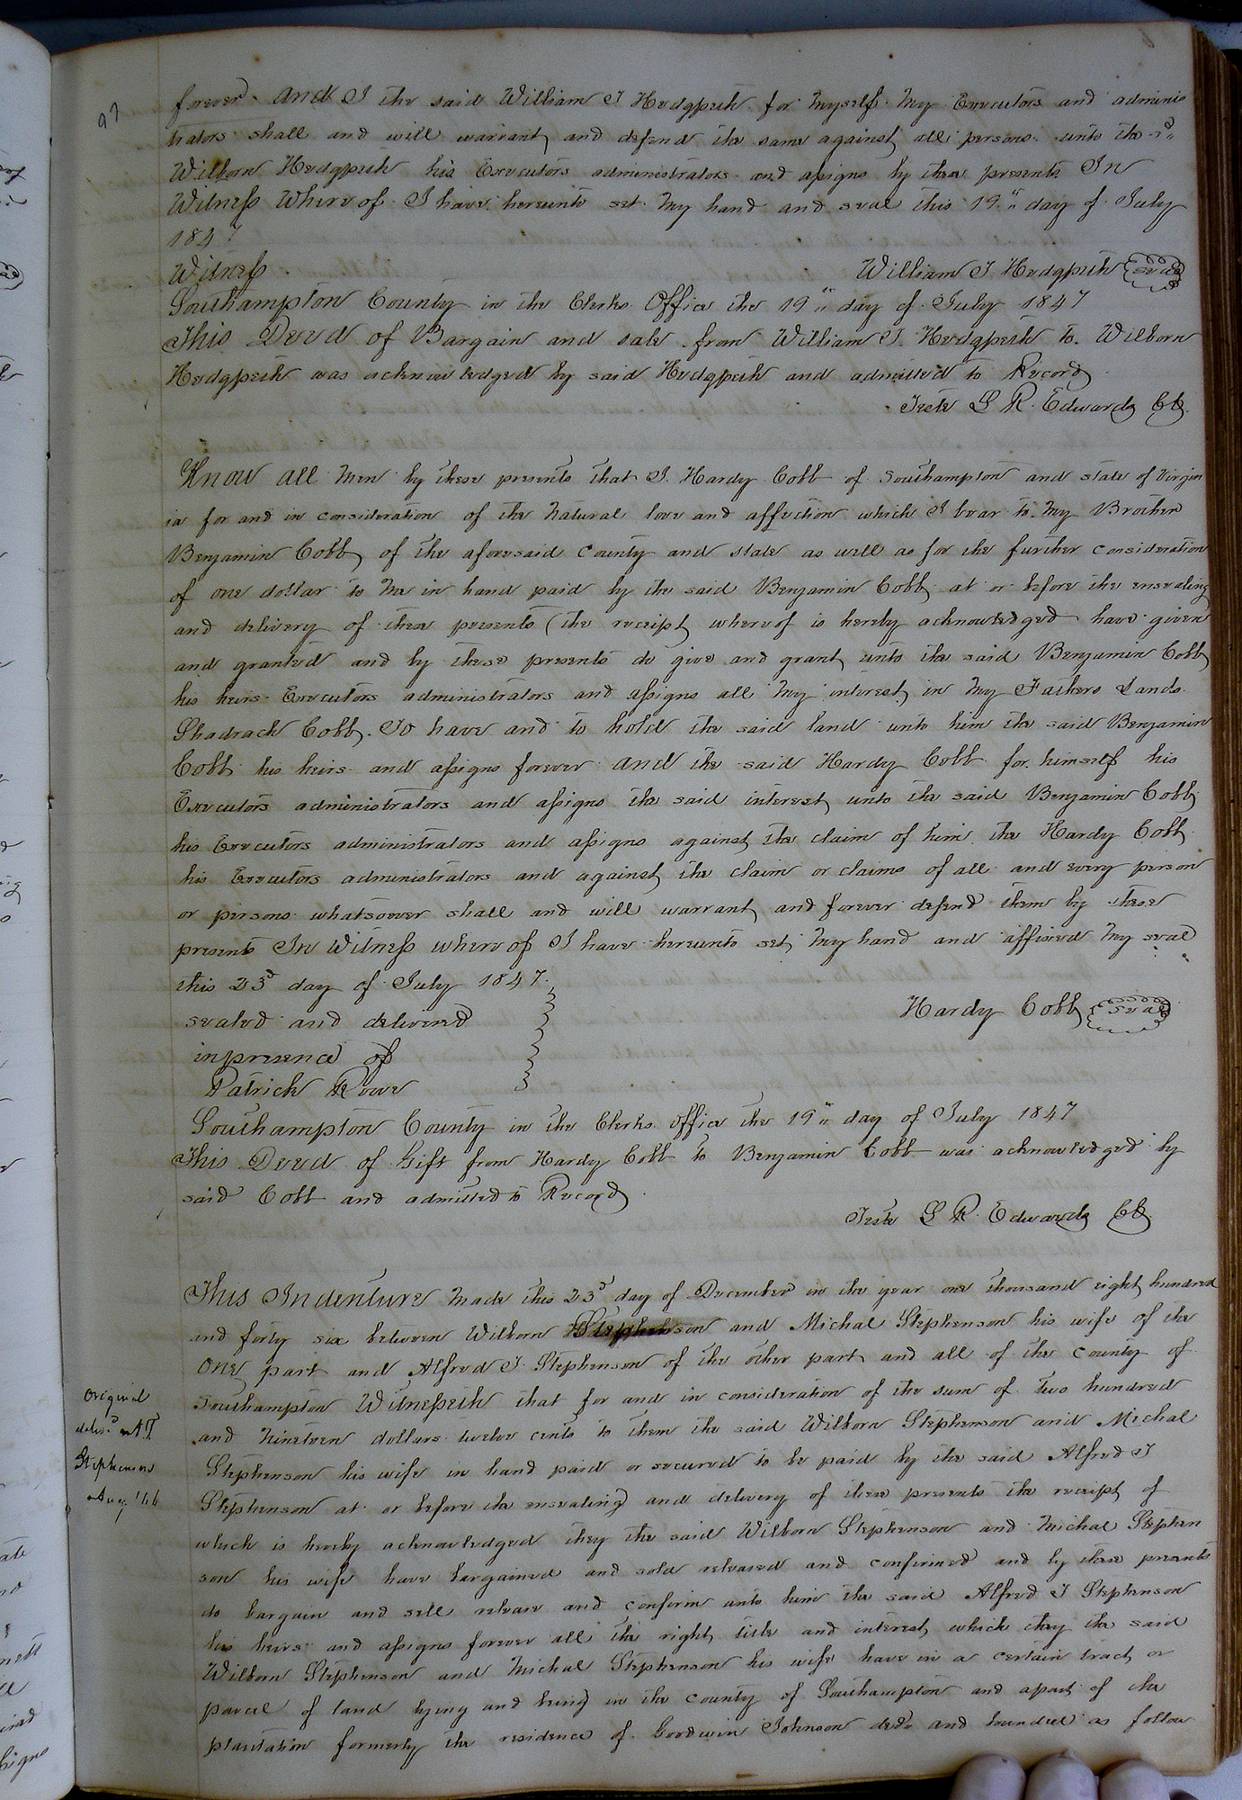 97
forever. And I the said William J Hedgpeth for myself my Executors and adminis
trators shall and will warrant and defend the same against all persons unto the sd
Wilborn Hedgpeth his Executors administrators and assigns by these presents In
Witness Whereof I have hereunto set my hand and seal this 19th day of July
1847
Witness. William J Hedgpeth seal
Southampton County in the Clerks Office the 19th day of July 1847
This Deed of Bargain and sale from William J. Hedgpeth to Wilborn
Hedgpeth was acknowledged by said Hedgpeth and admitted to Record
Teste L R. Edwards Ck.
Know all men by these presents that I Hardy Cobb of Southampton and state of Virgin
ia for and in consideration of the natural love and affection which I bear to my Brother
Benjamin Cobb, of the aforesaid County and state as well as for the further consideration
of one dollar to me in hand paid by the said Benjamin Cobb at or before the ensealing
and delivery of these presents (the receipt whereof is hereby acknowledged have given
and granted and by these presents do give and grant unto the said Benjamin Cobb
his heirs Executors administrators and assigns all my interest in my Fathers Lands.
Shadrack Cobb. To have and to hold the said land unto him the said Benjamin
Cobb his heirs and assigns forever and the said Hardy Cobb for himself his
Executors administrators and assigns the said interest unto the said Benjamin Cobb
his Executors administrators and assigns against the claim of him the Hardy Cobb
his Executors administrators and against the claim or claims of all and every person
or persons whatsoever shall and will warrant and forever defend them by these
presents In Witness whereof I have hereunto set my hand and affixed my seal
this 23d day of July 1847.
sealed and delivered Hardy Cobb seal
in presence of
Patrick Rowe
Southampton County in the Clerks office the 19th day of July 1847
This Deed of Gift from Hardy Cobb to Benjamin Cobb was acknowledged by
said Cobb and admitted to Record.
Teste L R. Edwards Ck.
This Indenture made this 23d day of December in the year one thousand eight hundred
and forty six between Wilborn Stephenson and Michal Stephenson his wife of the
one part and Alfred J Stephenson of the other part and all of the county of
Southampton Witnesseth that for and in consideration of the sum of two hundred
and nineteen dollars twelve cents to them the said Wilborn Stephenson and Michal
Stephenson his wife in hand paid or secured to be paid by the said Alfred J
Stephenson at or before the ensealing and delivery of these presents the receipt of
which is hereby acknowledged they the said Wilborn Stephenson and Michal Stephen
son his wife have bargained and sold released and confirmed and by these presents
do bargain and sell release and confirm unto him the said Alfred J Stephenson
his heirs and assigns forever all the right title and interest which they the said
Wilborn Stephenson and Michal Stephenson his wife have in a certain tract or
parcel of land lying and being in the county of Southampton and apart of the
plantation formerly the residence of Goodwin Johnson decd and bounded as follow
Original
Stephenson
Aug